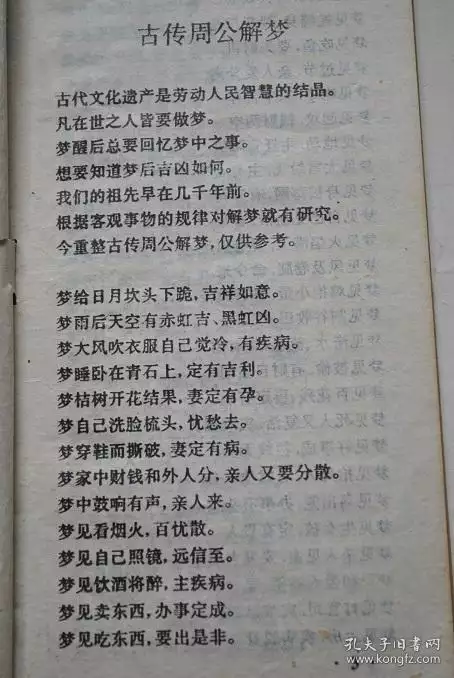 古传周公解梦
古代文化遗产是劳动人民智慧的结晶。
凡在世之人皆要做梦。
梦醒后总要回忆梦中之事。
想要知道梦后吉凶如何。
我们的祖先早在几千年前。
根据客观事物的规律对解梦就有研究。
今重整古传周公解梦,仅供参考。
梦给日月坎头下跪,吉祥如意。
梦雨后天空有赤虹吉、黑虹凶。
梦大风吹衣服自己觉冷,有疾病。
梦睡卧在青石上,定有吉利。
梦桔树开花结果,妻定有孕。
梦自己洗脸梳头,忧愁去。
梦穿鞋而撕破,妻定有病。
梦家中财钱和外人分,亲人又要分散。
梦中鼓响有声,亲人来。
梦见看烟火,百忧散。
梦见自己照镜,远信至。
梦见饮酒将醉,主疾病。
梦见卖东西,办事定成。
梦见吃东西,要出是非。
孔夫子旧书网
kongfz.com